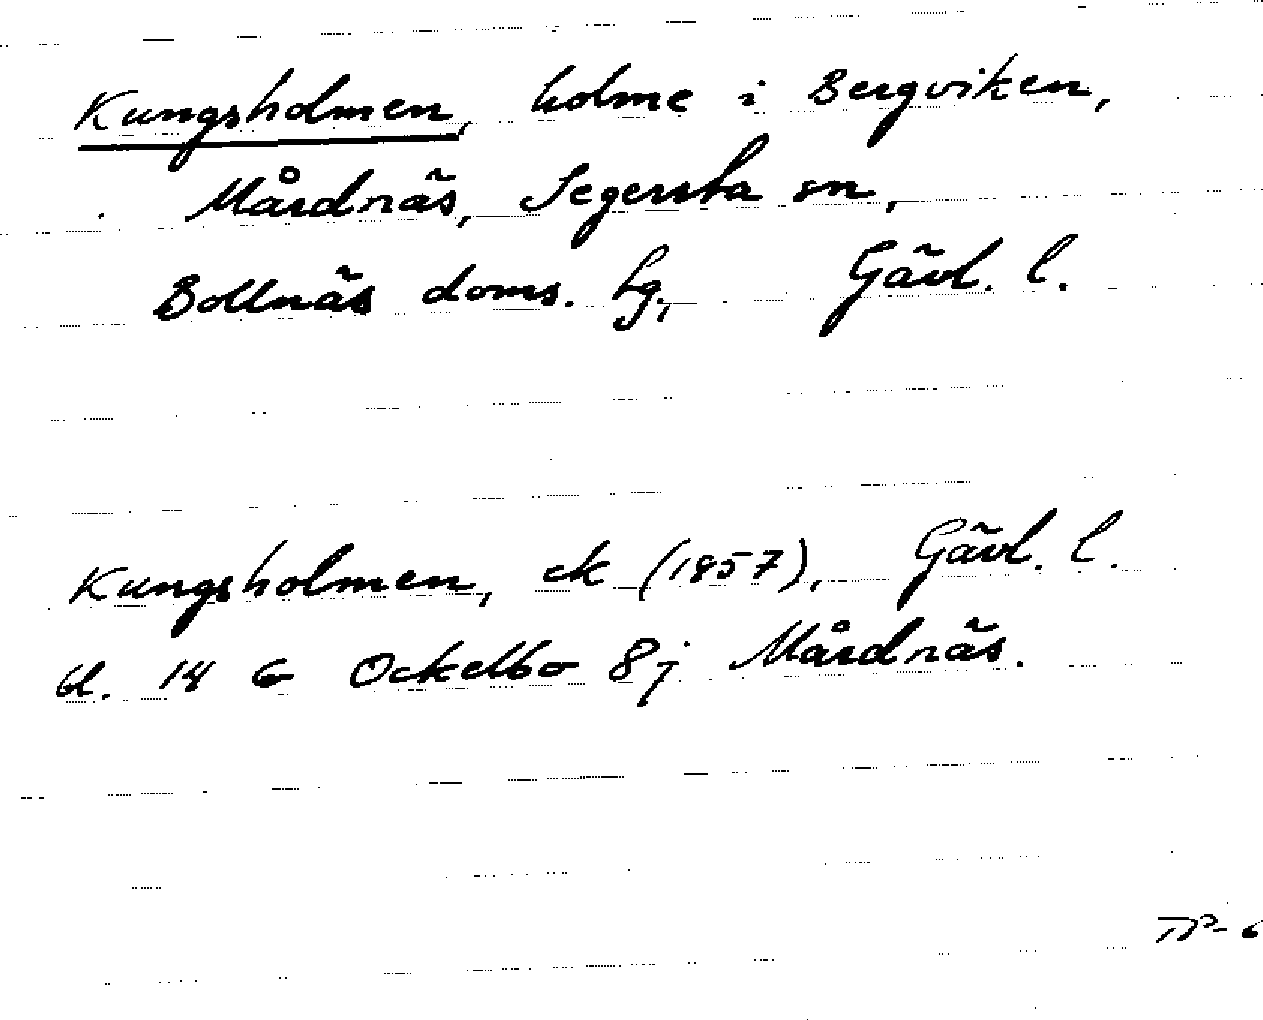 Kungsholmen, holme i Bergviken,
Mårdnäs, Segersta sn,
Bollnäs doms. hg, Gävl. l.
Kungsholmen, ek (1857), Gävl. l.
bl. 14 G Ockelbo 8j Mårdnäs.